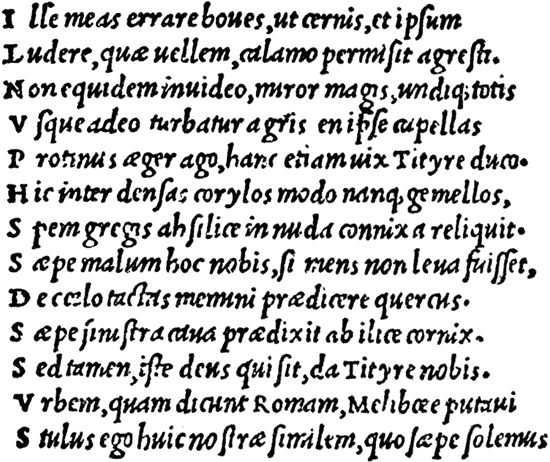 I lle meas errare boues, ut cernis, et ipsum
L udere, quæ uellem, calamo permisit agresti.
N on equidem inuideo, miror magis, undiq; totis
V sque adeo turbatur agris en ipse capellas
P rotinus æger ago, hanc etiam uix Tityre duco.
H ic inter densas corylos modo nanq; gemellos,
S pem gregis ah silice in nuda connixa reliquit.
S æpe malum hoc nobis, si mens non leua fuisset,
D e cœlo tactas memini prædicere quercus.
S æpe sinistra caua prædixit ab ilice cornix.
S ed tamen, iste deus qui sit, da Tityre nobis.
V rbem, quam dicunt Romam, Melibœe putaui
S tulus ego huic nostræ similem, quo sæpe solemus